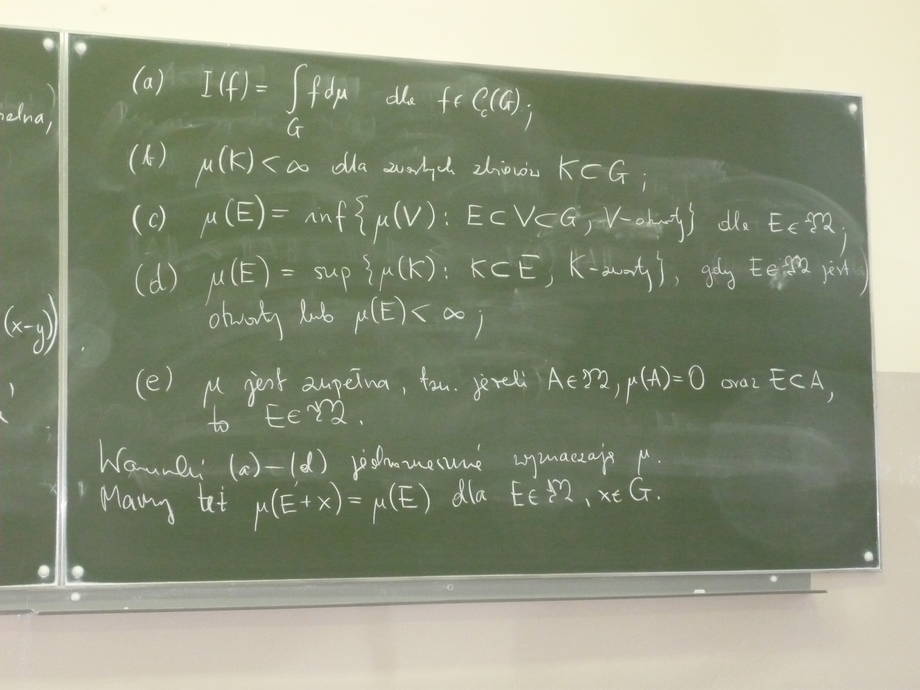 ełna,
(x-y)
,
(a) I(f) = ∫_G f dμ dla f ∈ C_c(G);
(b) μ(K) < ∞ dla zwartych zbiorów K ⊂ G;
(c) μ(E) = inf{μ(V): E ⊂ V ⊂ G, V-otwarty} dla E ∈ 𝔐;
(d) μ(E) = sup{μ(K): K ⊂ E, K-zwarty}, gdy E ∈ 𝔐 jest
otwarty lub μ(E) < ∞;
(e) μ jest zupełna, tzn. jeżeli A ∈ 𝔐, μ(A) = 0 oraz E ⊂ A,
to E ∈ 𝔐.
Warunki (a)-(d) jednoznacznie wyznaczają μ.
Mamy też μ(E+x) = μ(E) dla E ∈ 𝔐, x ∈ G.